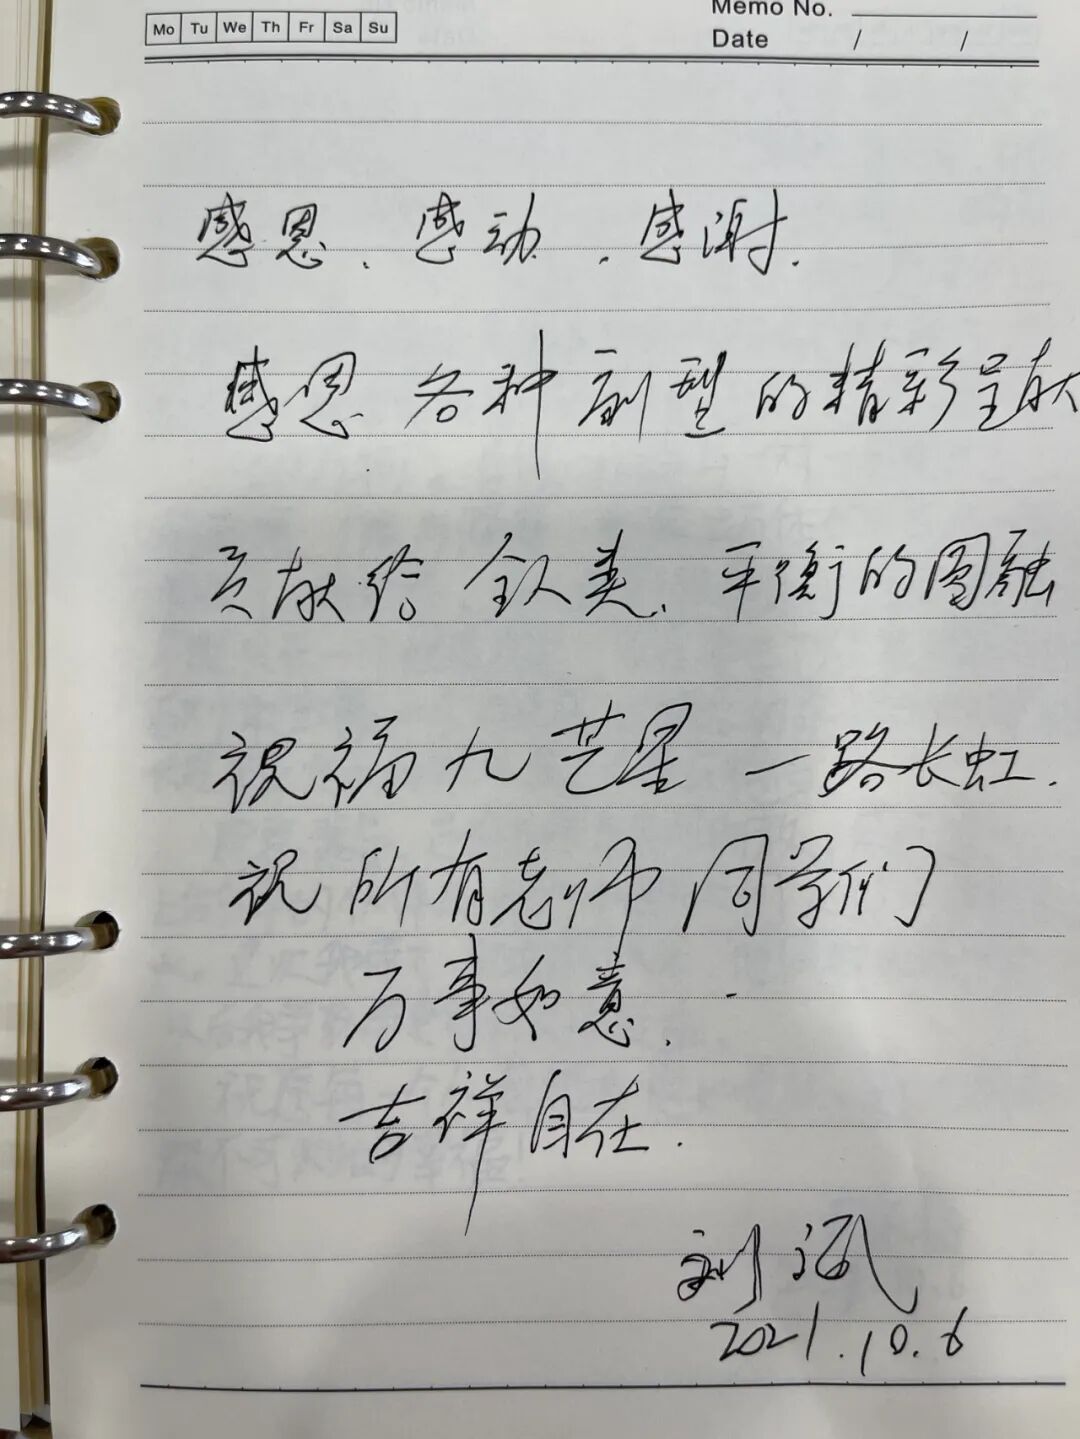 Mo Tu We Th Fr Sa Su
Memo No.
Date / /
感恩、感动、感谢.
感恩 各种 剧型的精彩呈献
贡献给 全人类、平衡的圆融
祝福九艺星 一路长虹.
祝所有老师同学们
万事如意.
吉祥自在.
刘
2021.10.6